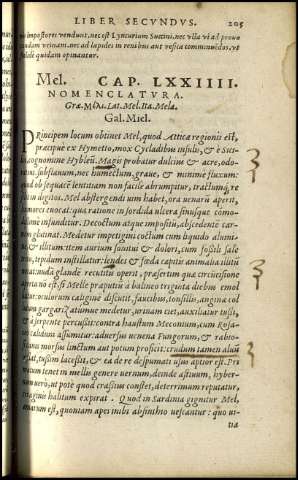 LIBER SECVNDVS. 205
impostores vendunt, nec est Lyncurium Succini, nec ulla vi ad prouo
candam vrinam, nec ad lapides in renibus aut vesica comminuendos, vt
falsò quidam opinantur.
Mel. CAP. LXXIIII.
NOMENCLATVRA.
Græ. Μέλι. Lat. Mel. Ita. Mela.
Gal. Miel.
Principem locum obtinet Mel, quod Atticæ regionis est,
præcipuè ex Hymetto, mox Cycladibus insulis, & è Sici-
cognomine Hybleũ. Magis probatur dulcius & acre, odo-
substauum, nec humectum, graue, & minimè fluxum:
quod ob sequacē lentitiam non facilè abrumpitur, tractumq́; re
in digitos. Mel abstergendi uim habet, ora uenarũ aperit,
euocat: qua ratione in sordida ulcera sinusque commo-
infunditur. Decoctum atque impositũ, abscedentē car-
glutinat. Medetur impetigini coctum cum liquido alumi-
illitum: item aurium sonitui & dolori, cum fossili sale
tepidum instillatur: lendes & fœda capitis animalia illitũ
nuda glande recutitu operit, præsertim qua circuncisione
non est, si Melle præputiũ à balineo triginta diebus emol
oculorum caliginē discutit, faucibus, tonsillis, angina col
gargarizatumue medetur, urinam ciet, auxiliatur tussi,
& à serpente percussis: contra haustum Meconium, cum Rosa-
calidum assumitur: aduersus uenena Fungorum, & rabio-
morsus linctum aut potum proficit: crudum tamen aluũ
tussim lacessit, & ea de re despumati usus aptior est. Pri-
tenet in mellis genere uernum, deinde æstiuum, hyber-
uerò, ut pote quod crassius constet, deterrimum reputatur,
halitum exprirat. Quod in Sardinia gignitur Mel,
est, quoniam apes inibi absinthio uescantur: quo ui-
tia